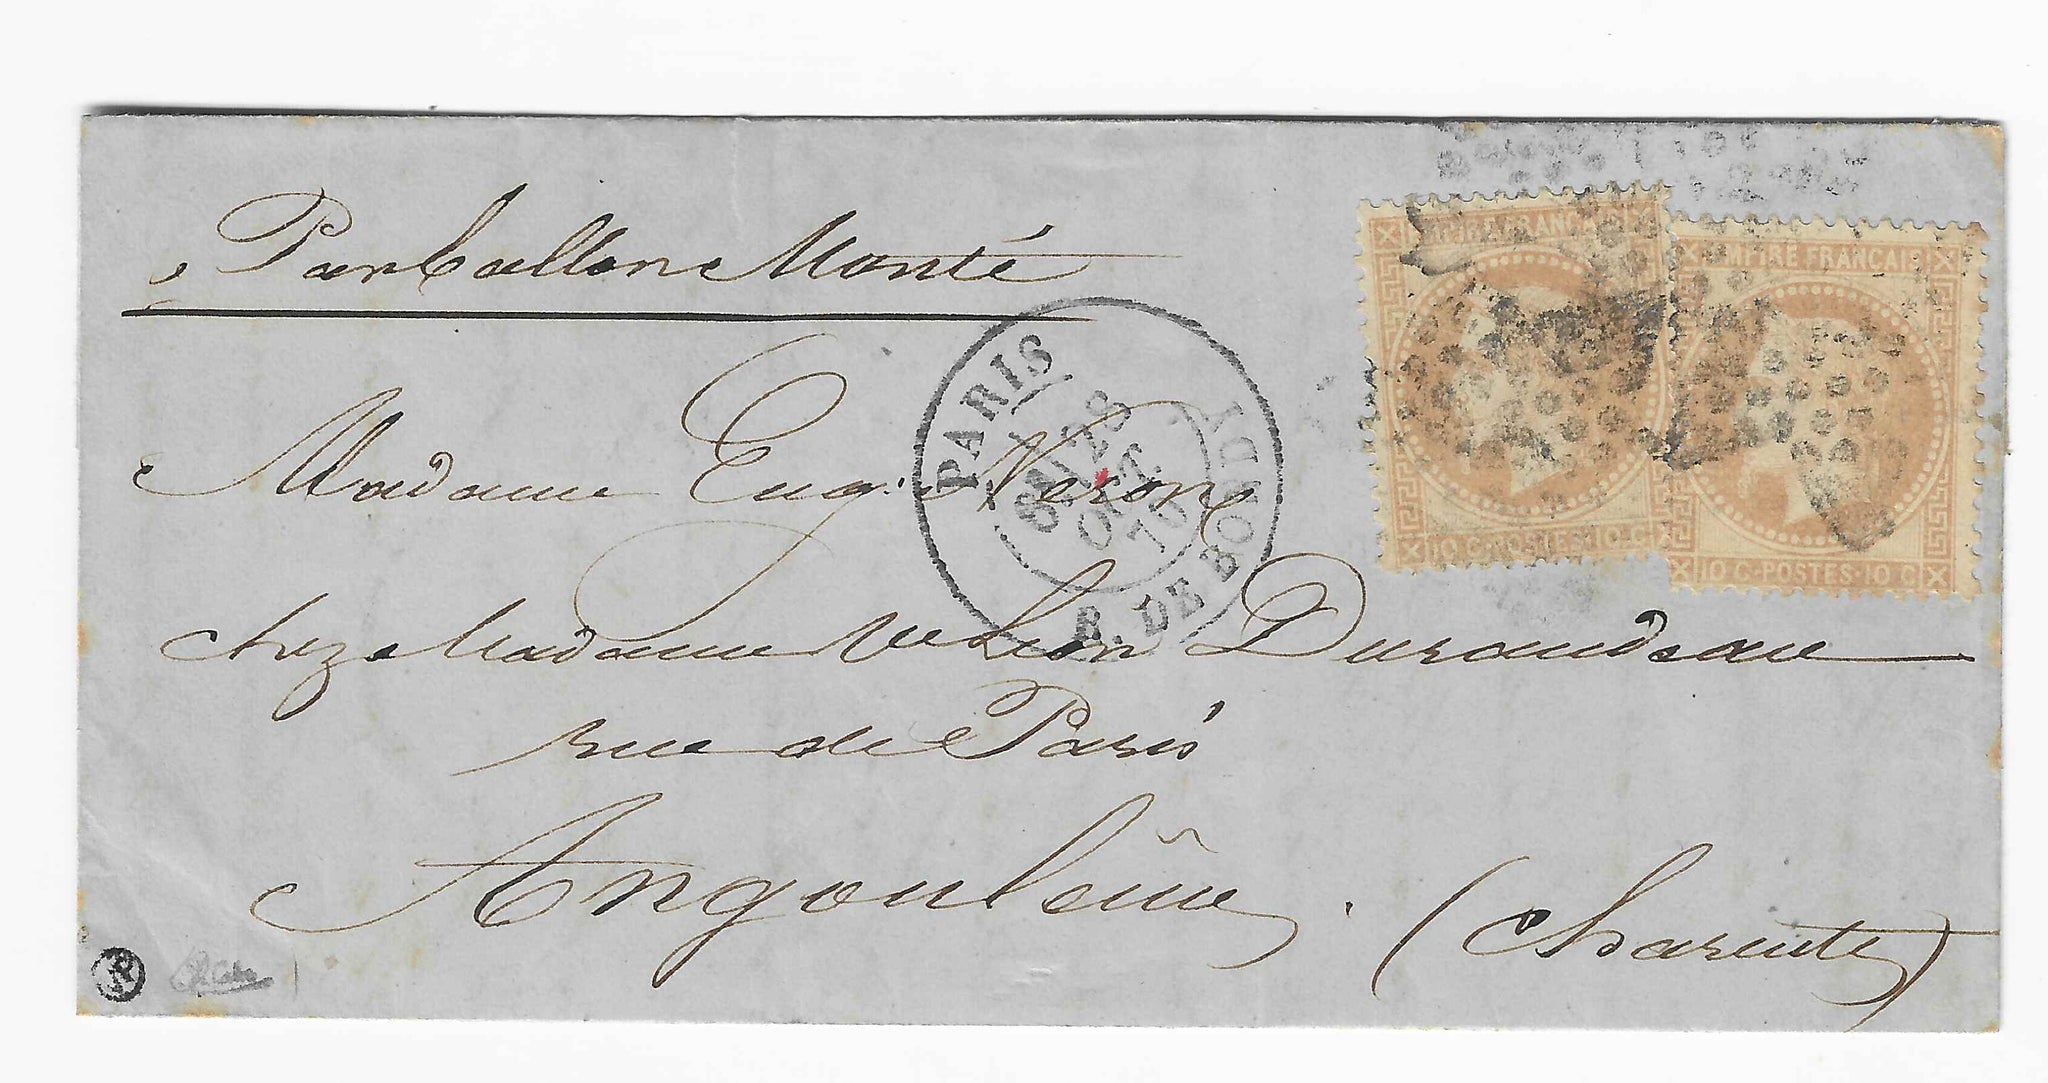 Par ballon Monté
EMPIRE FRANÇAIS
10 C·POSTES·10 C
EMPIRE FRANÇAIS
10 C·POSTES·10 C
PARIS
28
OCT.
70
R. DE BONDY
Madame Eug. Veron
chez Madame Ve Léon Durandeau
rue de Paris
Angoulême
(Charente)